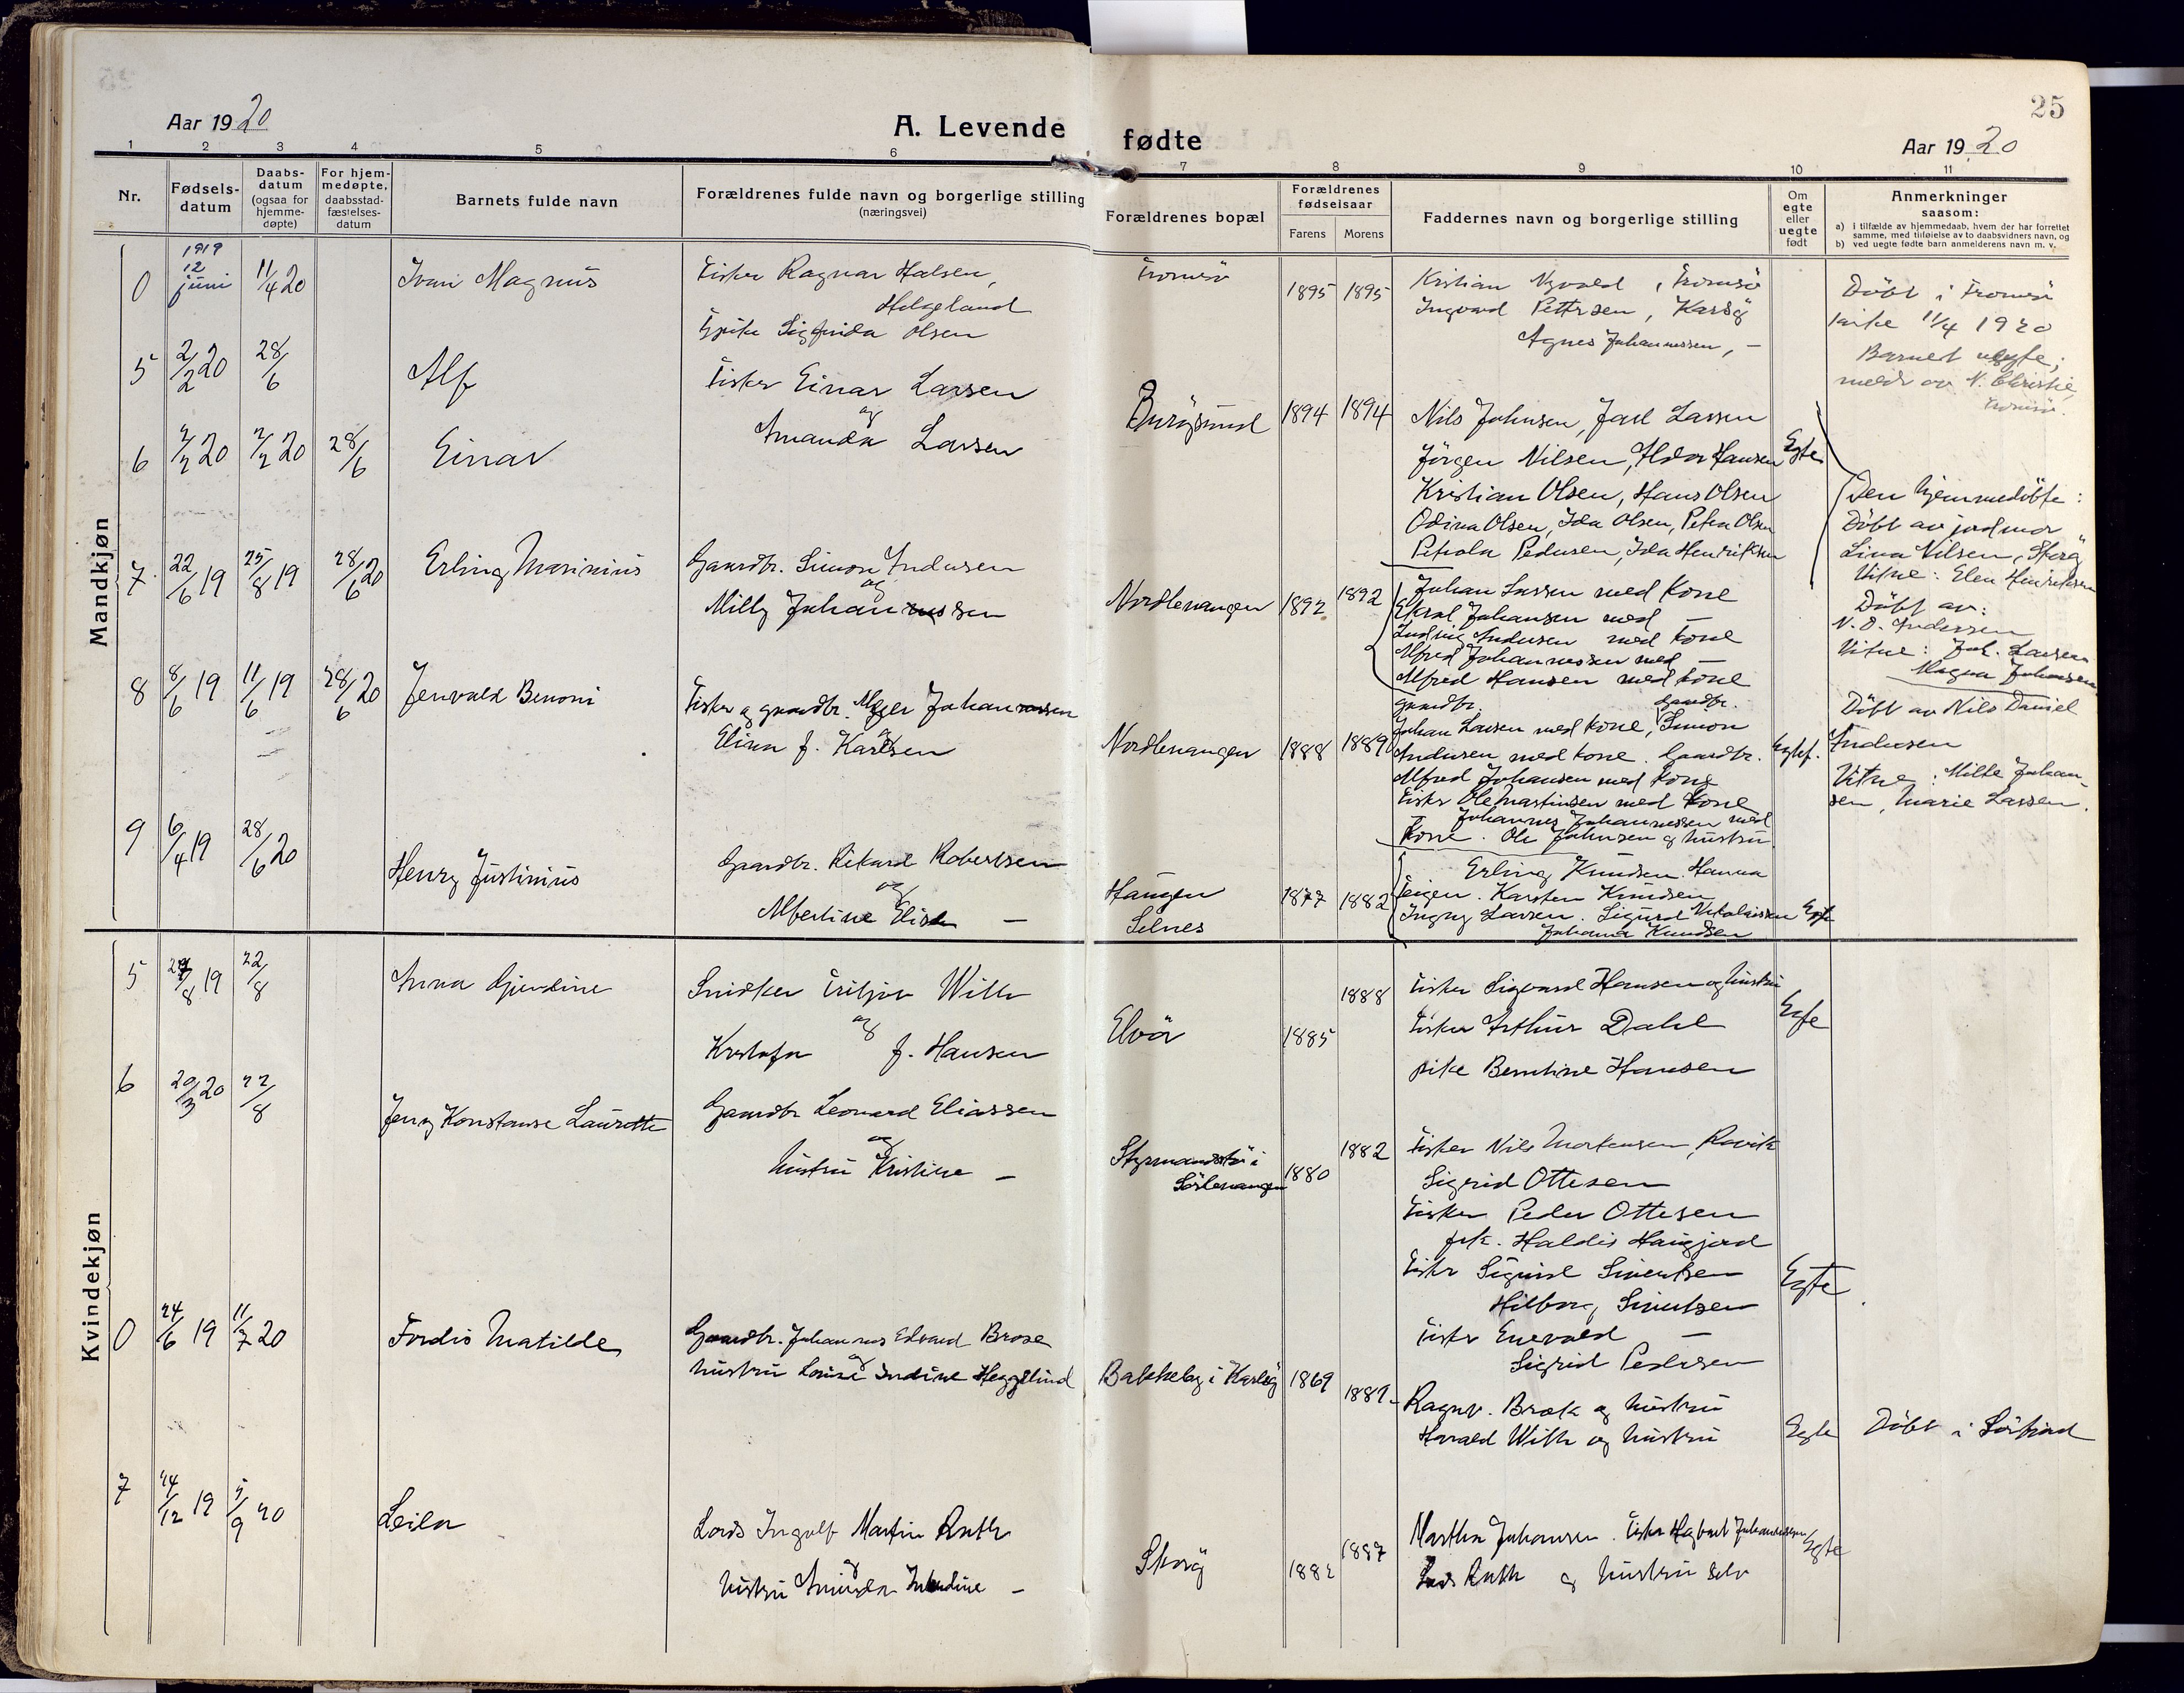 25
Aar 1920
A. Levende fødte
Aar 1920
1 2 3 4 5 6 7 8 9 10 11
Nr.
Fødsels-
datum
Daabs-
datum
(ogsaa for
hjemme-
døpte)
For hjem-
medøpte,
daabsstad-
fæstelses-
datum
Barnets fulde navn
Forældrenes fulde navn og borgerlige stilling
(næringsvei)
Forældrenes bopæl
Forældrenes
fødselsaar
Farens Morens
Faddernes navn og borgerlige stilling
Om
egte
eller
uegte
født
Anmerkninger
saasom:
a) i tilfælde av hjemmedaab, hvem der har forrettet
samme, med tilføielse av to daabsvidners navn, og
b) ved uegte fødte barn anmelderens navn m. v.
Mandkjøn
0 1919 12 juni 11/4 20 Ivan Magnus
Fisker Ragnar Halsen,
Helgeland
Sigfrida Olsen
Tromsø 1895 1895
Kristian Nyvold, Tromsø
Ingvard Pettersen, Karlsøy
Agnes Johannessen, —
Döbt i Tromsø
kirke 11/4 1920
Barnet uegte;
meldt av N. Christie,
Tromsø.
5 2/2 20 28/6 Alf
Fisker Einar Larsen
og
Amanda Larsen
6 2/2 20 2/2 20 28/6 Einar
1894 1894
Nils Johnsen, Jarl Larsen
Jörgen Nilsen, Hansen
Kristian Olsen, Hans Olsen
Odina Olsen, Ida Olsen, Petra Olsen
Pedersen, Ida Henriksen
Egte
Den hjemmedöbte:
Döbt av jordmor
Lina Nilsen,
Vitne: Elen Henriksen
7 22/6 19 25/8 19 28/6 20 Erling Marinius
Gaardbr. Simon Andersen
og
Milly Johannessen
Nordlenangen 1892 1892
Johan Larsen med kone
Johansen med —
Ludvig Andersen med kone
Alfred Johannessen med —
Alfred Hansen med kone
Döbt av:
N. D. Andersen
Vitne: Joh. Larsen
Magna Johansen
8 8/6 19 11/6 19 28/6 20 Jenvald Benoni
Fisker og gaardbr. Johannessen
Elina f. Karlsen
Nordlenangen 1888 1889
gaardbr. gaardbr.
Johan Larsen med kone, Simon
Andersen med kone. Gaardbr.
Alfred Johansen med kone
Fisker Ole Martinsen med kone
Johannes Johannessen med
kone. Ole Johnsen og hustru.
Egtef.
Döbt av Nils Daniel
Andersen
Vitne: Milte Johan-
sen, Marie Larsen.
9 6/4 19 28/6 20 Henry Justinius
Gaardbr. Rikard Robertsen
og
Albertine Elise —
Haugen
Selnes
1877 1882
Erling Knudsen. Hanna
Teigen. Karsten Knudsen
Larsen. Sigurd Nikolaissen
Johanna Knudsen
Egte
Kvindekjøn
5 8 19 22/8 Anna Gjerdine
Snidker Fritjov With
og
f. Hansen
Elvör 1885 1888
Fisker Sigvard Hansen og hustru
Fisker Arthur Dahl
pike Berntine Hansen
Egte
6 20/3 20 22/8 Jenny Konstanse Laurette
Gaardbr Leonard Eliassen
og
hustru Kristine —
i
Sörlenangen
1880 1882
Fisker Nils Mortensen,
Sigrid Ottesen
Fisker Peder Ottesen
frk. Haldis Haugjord
Fisker Sigurd Sivertsen
Hilborg Sivertsen
Fisker Enevald —
Sigrid Pedersen
Egte
0 24/6 19 11/7 20 Fordis Matilde
Gaardbr. Johannes Edvard Brose
og
hustru Lovise Indine Heggelund
Bakkeby i Karlsøy 1869 1882
Ragnv. Bræk og hustru
Harald With og hustru
Egte
Döbt i Sörfjord
7 14/12 19 5/9 20 Leila
Lods Ingolf Martin Ruth
og
hustru Amanda —
1882 1887
Martha Johansen. Fisker Hagbart Johannessen
Lods Ruth og hustru selv
Egte